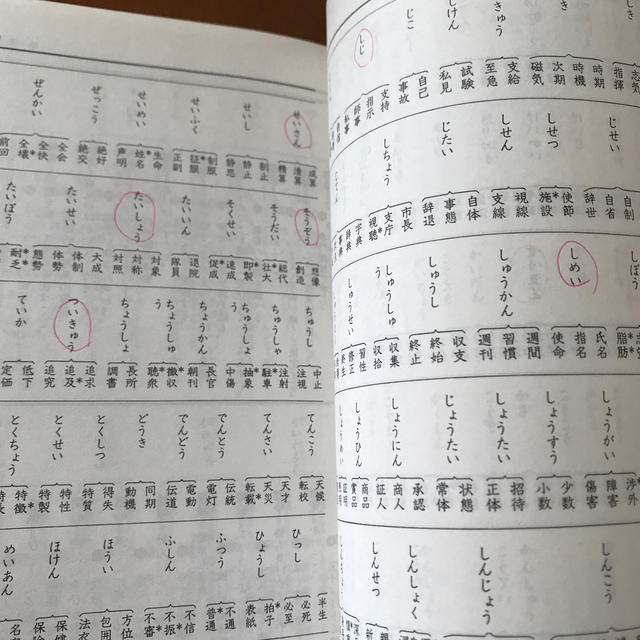 しき
志気
指揮
しきゅう
時期
時機
次期
磁気
支給
至急
しけん
試験
私見
じこ
自己
事故
しじ
支持
指示
師事
じせい
自制
自省
辞世
しせつ
使節
施設*
しせん
視線
支線
じたい
自体
事態
辞退
しちょう
市長
支庁
視聴*
字典
辞典
しぼう
脂肪*
しめい
氏名
指名
使命
しゅうかん
週間
習慣
週刊
しゅうし
収支
終始
終止
しゅうしゅう
収集
収拾
しゅうせい
習性
修正
終生
しょうがい
渉外*
障害
傷害
しょうすう
少数
小数
しょうたい
招待
正体
じょうたい
状態
常体
しょうにん
承認
商人
証人
しょうひん
商品
賞品
しょうめい
しんこう
しんじょう
しんしょく
しんせつ
せいさん
成算
清算
精算
せいし
制止
静止
静思
せいふく
制服
征服*
正副
せいめい
生命
姓名*
声明
ぜっこう
絶好
絶交
ぜんかい
全会
全快
全壊*
前回
そうぞう
想像
創造
そうだい
総代
壮大*
そくせい
即製*
速成
促成
たいいん
退院
隊員
たいしょう
対象
対称
対照
たいせい
大成
体制
体勢
態勢
たいぼう
耐乏*
ちゅうし
中止
注視
ちゅうしゃ
注射
駐車*
ちゅうしょう
抽象*
中傷
ちょうかん
長官
朝刊
ちょうしゅう
徴収*
聴衆*
ちょうしょ
長所
調書
ついきゅう
追求
追及*
追究
ていか
低下
定価
てんこう
天候
転校
てんさい
天才
天災
転載*
でんとう
伝統
電灯
でんどう
電動
伝道
どうき
同期
動機
とくしつ
得失
特質
とくせい
特性
特製
とくちょう
特徴*
特長
半生
ひっし
必死
必至
ひょうし
拍子*
表紙
ふつう
不通
普通*
ふしん
不信
不振*
不審*
ほうい
方位
包囲
法衣
ほけん
保健
保険
めいあん